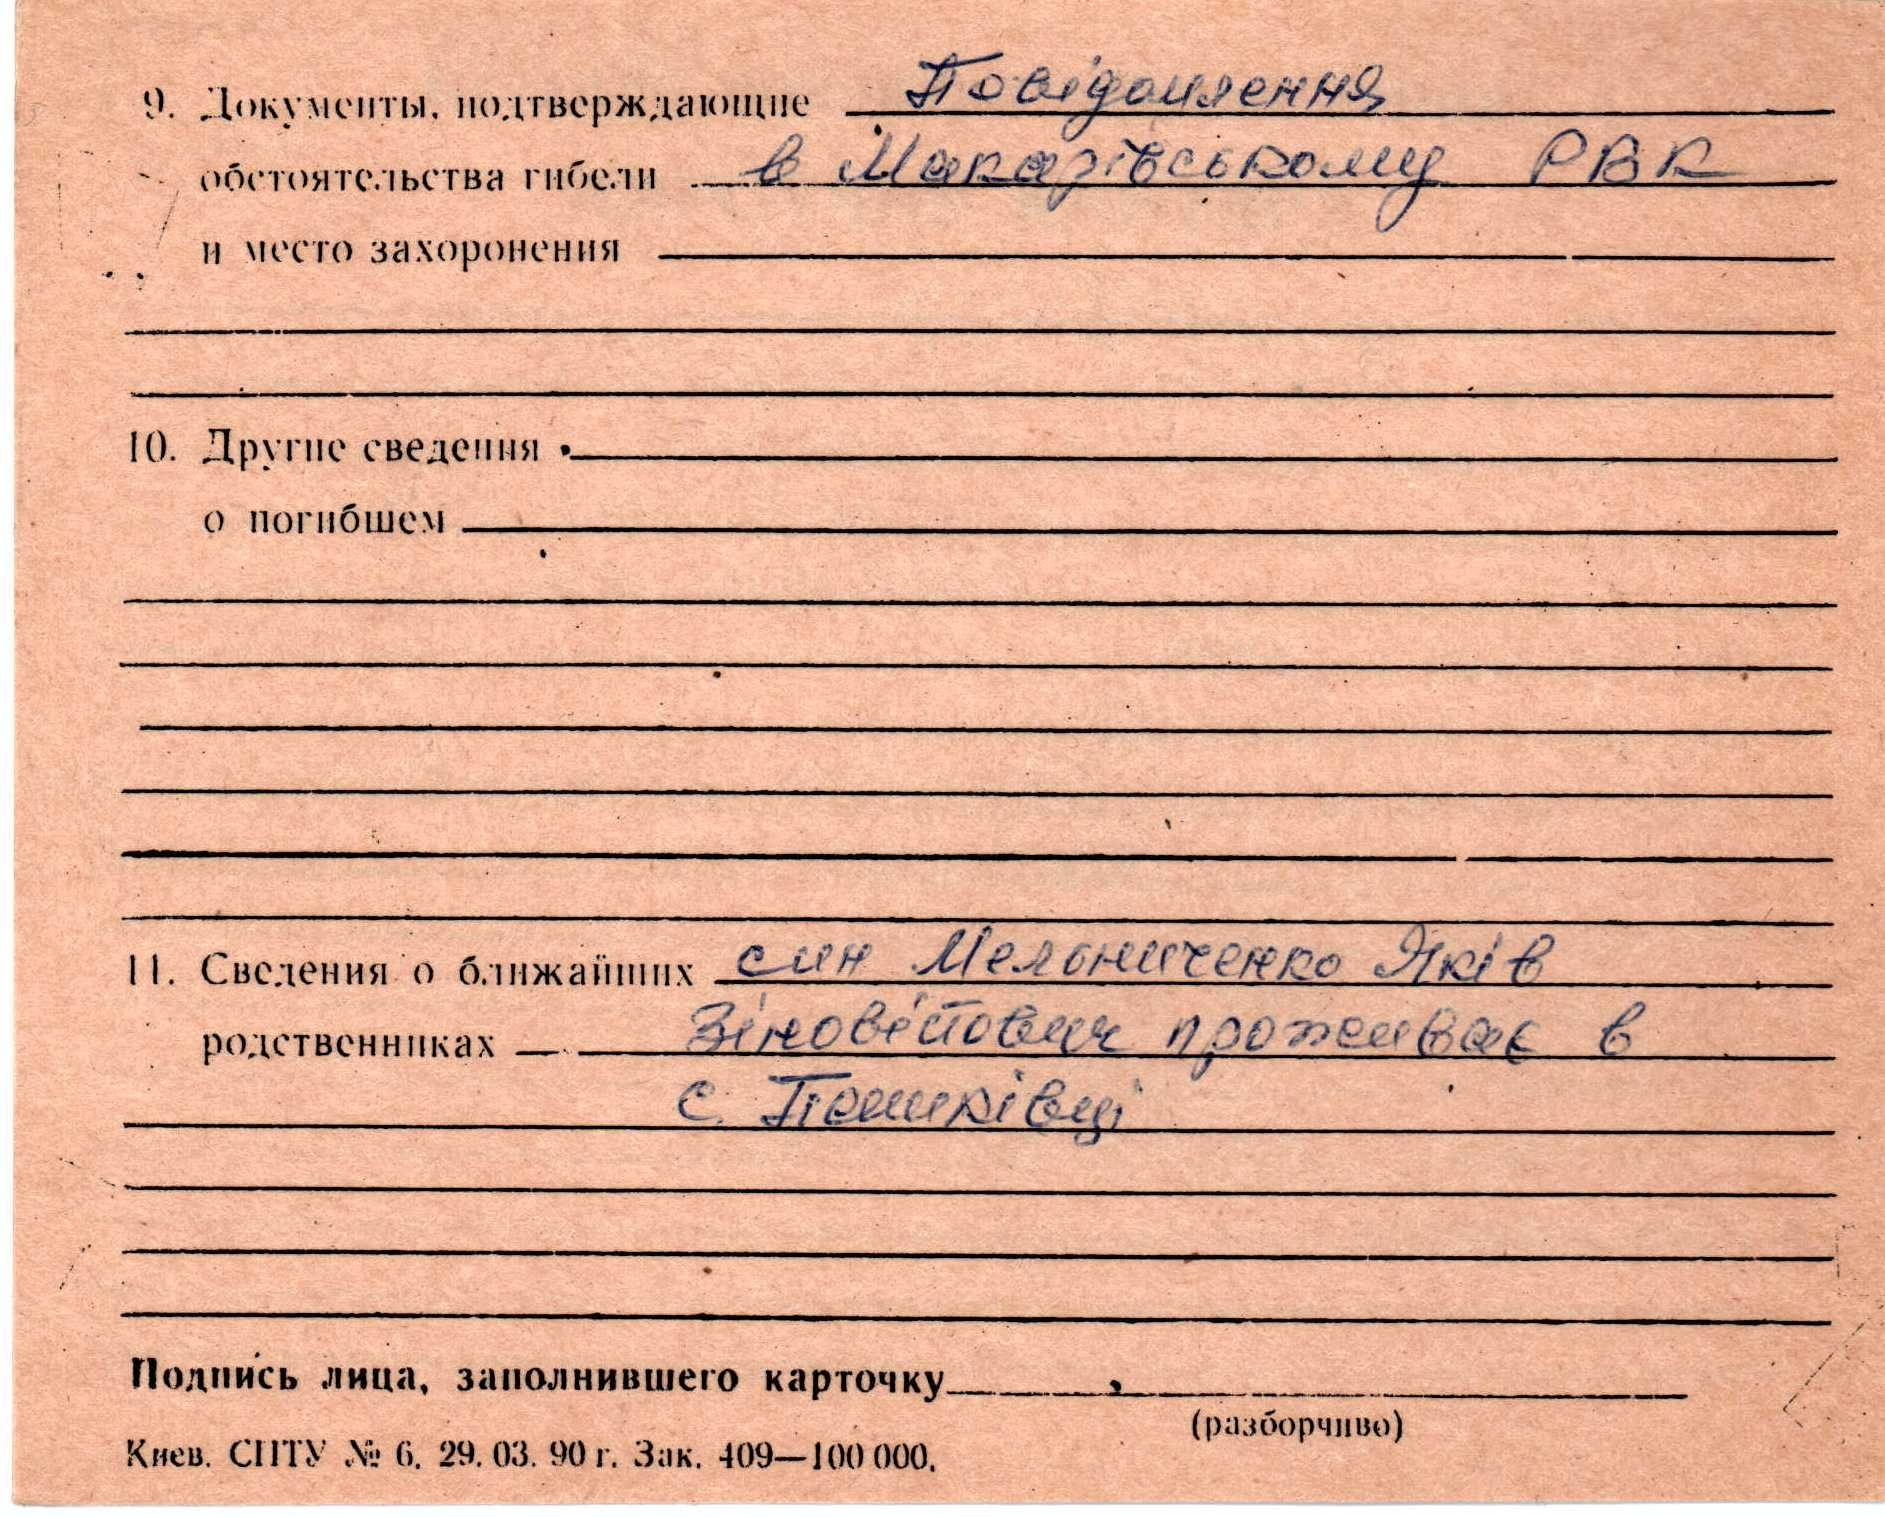 9. Документы, подтверждающие Повідомлення
обстоятельства гибели в Макарівському РВК
и место захоронения
10. Другие сведения
о погибшем
11. Сведения о ближайших син Мельниченко Яків
родственниках Зіновійович проживає в
с. Пашківці
Подпись лица, заполнившего карточку
(разборчиво)
Киев. СПТУ № 6. 29. 03. 90 г. Зак. 409—100 000.